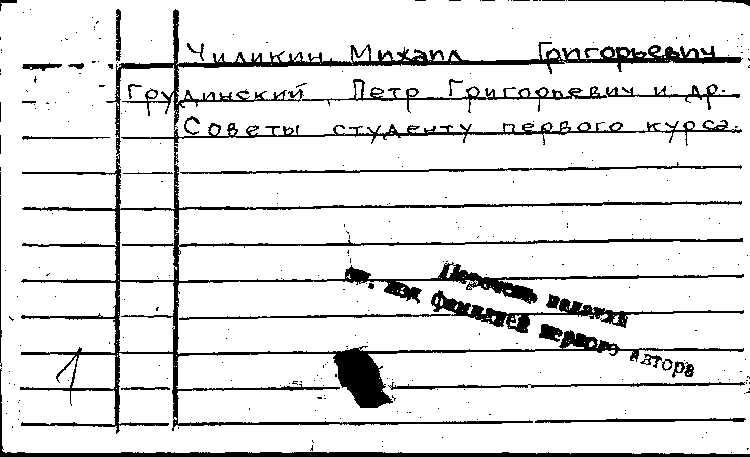 Чиликин, Михаил Григорьевич
Грудинский, Петр Григорьевич и др.
Советы студенту первого курса.
Перечень изданий
см. под фамилией первого автора
1